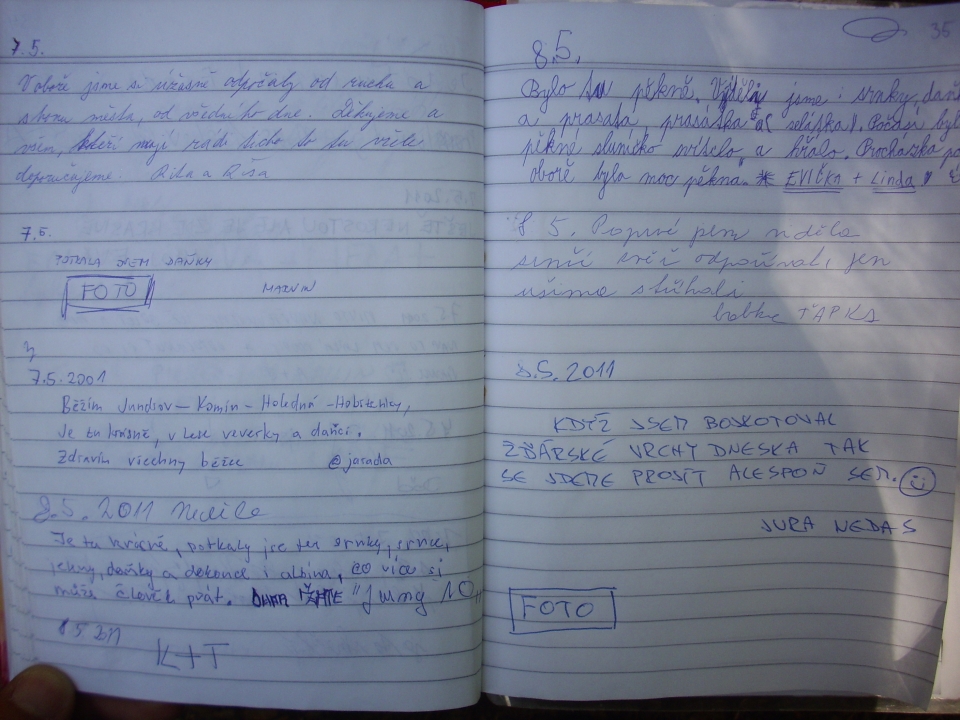 7.5.
V oboře jsme si úžasně odpočaly od ruchu a
shonu města, od všedního dne. Děkujeme a
všem, kteří mají rádi ticho to tu vřele
doporučujeme. Rita a Ríša
7.5.
POTKALA JSEM DAŇKY
FOTO MARVIN
7.5.2001
Běžím Jundrov – Komín – Holedná – Kohoutovice,
Je tu krásně, v lese veverky a daňci.
Zdravím všechny běžce @jarada
8.5. 2011 Neděle
Je tu krásně, potkaly jsme tu srnky, srnce,
jeleny, daňky a dokonce i albína, co více si
může člověk přát. "Jumg 10"
8 5 2011
K+T
35
8.5.
Bylo tu pěkně. Viděly jsme: srnky, daňky
a prasata, prasátka a( selátka). Počasí bylo
pěkné sluníčko svítilo a hřálo. Procházka po
oboře byla moc pěkná. EVIČKA + Linda
8 5. Poprvé jsem viděla
zvěř odpočívat, jen
ušima stříhali
babka ŤAPKA
8.5. 2011
KDYŽ JSEM BOJKOTOVAL
ŽĎÁRSKÉ VRCHY DNESKA TAK
SE JDEME PROJÍT ALESPOŇ SEM. ☺
JURA NEDAS
FOTO